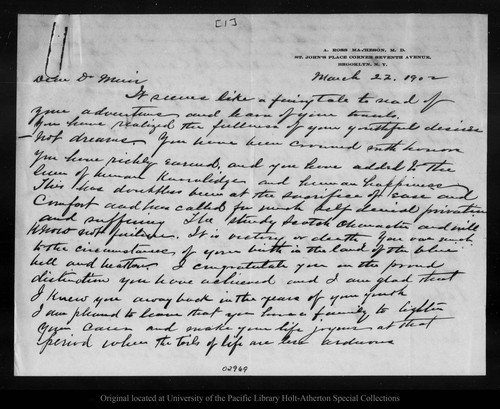 [1]
A. ROSS MATHESON, M. D.
ST. JOHN'S PLACE CORNER SEVENTH AVENUE,
BROOKLYN, N. Y.
March 22, 1902
Dear Dr Muir
It seems like a fairy tale to read of
your adventures and learn of your travels.
You have realized the fullness of your youthful desires
- not dreams. You have been crowned with honor
you have richly earned, and you have added to the
sum of human knowledge and human happiness
This has doubtless been at the sacrifice of ease and
comfort and has called for much self denial privation
and suffering The sturdy Scotch character and will
know not failure. It is victory or death. You owe much
to the circumstances of your birth in the land of the blue
bell and heather. I congratulate you on the proud
distinction you have achieved and I am glad that
I knew you away back in the years of your youth
I am pleased to learn that you have a family to lighten
your cares and make your life joyous at that
period when the toils of life are less arduous
02969
Original located at University of the Pacific Library Holt-Atherton Special Collections